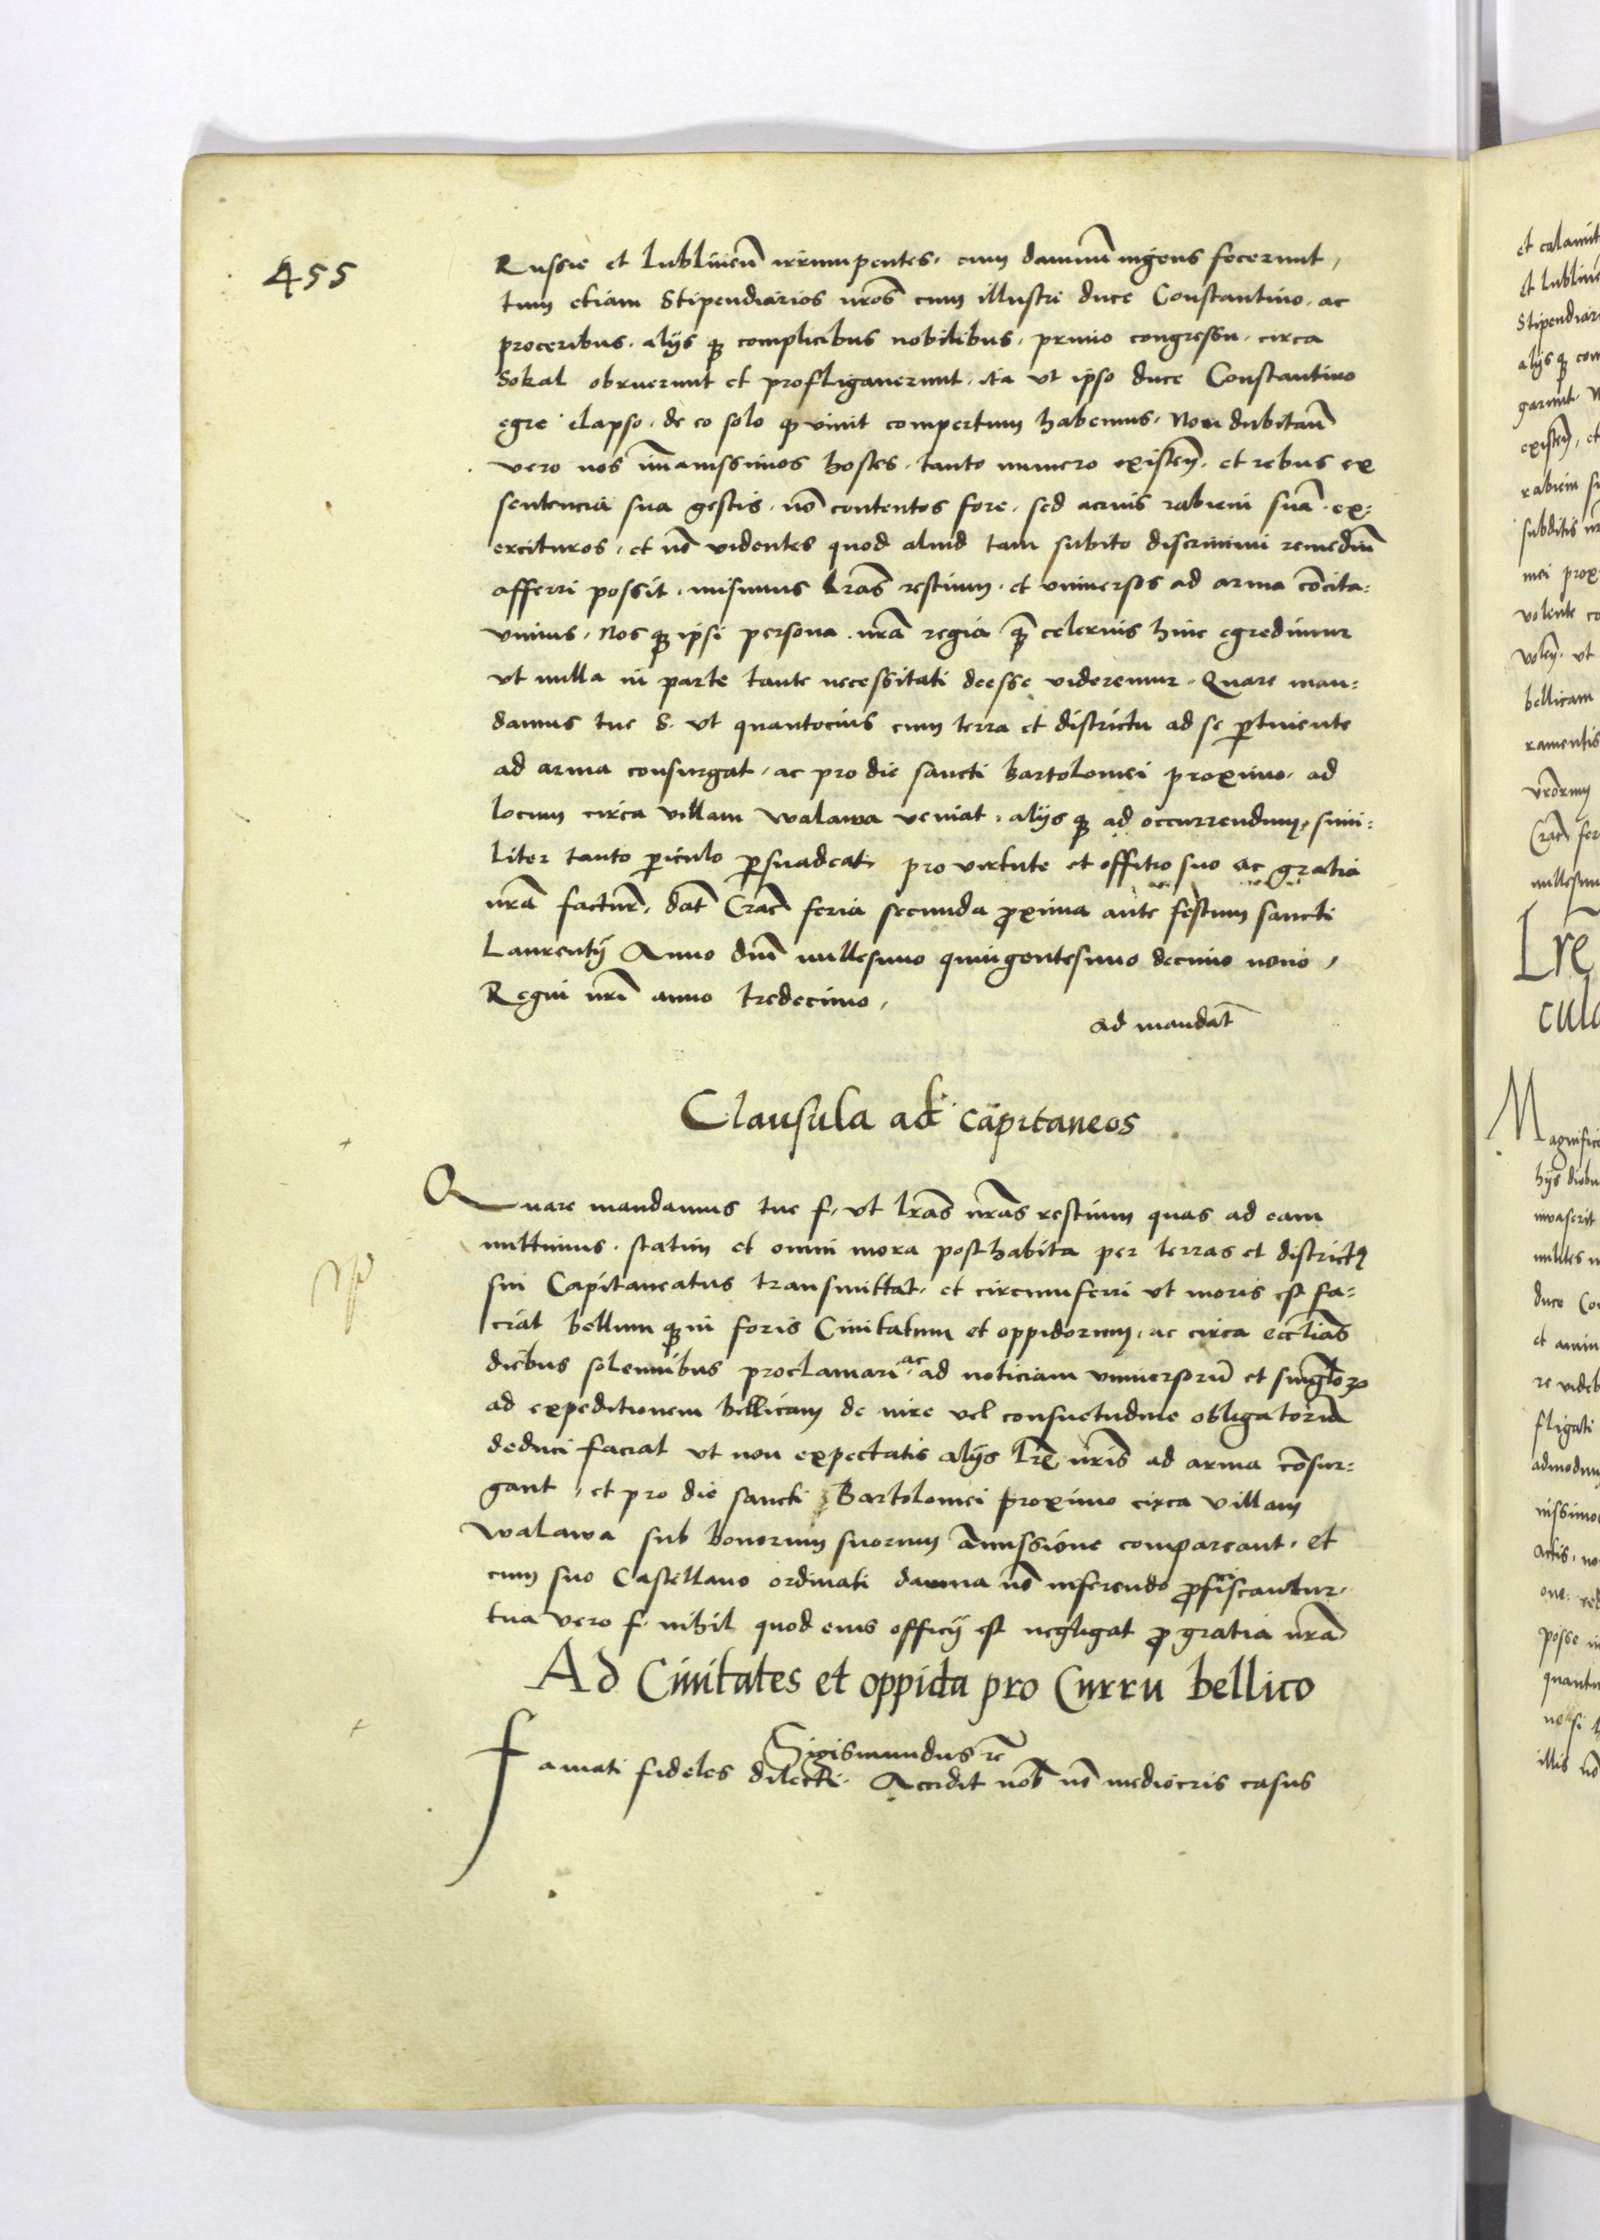 455
Russie et lubliñeñ irrumpentes, cum damnũ ingens fecerunt,
tum etiam Stipendiarios nr̃os cum illustri duce Constantino, ac
proceribus, alijs qȝ complicibus nobilibus, primo congressu, circa
Sokal obruerunt et profligaverunt, ita ut ipso duce Constantino
egre elapso, de eo solo qp vivit compertum habemus, Non dubitañ
vero nos im̃anissimos hostes, tanto numero existeñ, et rebus ex
sentencia sua gestis, nõ contentos fore, sed acrius rabiem suã ex=
ercituros, et nõ videntes quod aliud tam subito discrimini remediũ
afferri possit, misimus lrãs restium, et universos ad arma cõcita=
vimus, Nos qȝ ipsi persona nrã regia qȝ celerius hinc egredimur
ut nulla in parte tante necessitati deesse videremur, Quare man=
damus tue S. ut quantocius cum terra et districtu ad se ꝑtinente
ad arma consurgat, ac pro die sancti Bartolomei proximo, ad
locum circa villam walawa veniat, alijs qȝ ad occurrendum, simi=
liter tanto ꝑiculo ꝑsuadeat, pro virtute et offitio suo ac gratia
nrã factur̃, dat̃ Crac̃ feria secunda ꝓxima ante festum sancti
Laurentij Anno dñi millesimo quingentesimo decimo nono,
Regni nr̃i anno tredecimo,
ad mandat̃
Clausula ad capitaneos
Quare mandamus tue f. ut lrãs nrãs restium quas ad eam
mittimus, statim et omni mora posthabita per terras et districtꝰ
sui Capitaneatus transmittat, et circumferri ut moris est fa=
ciat bellum qȝ in foris Civitatum et oppidorum, ac circa ecc̃lias
diebus solennibus proclamari ac ad noticiam universorũ et singl̃oꝝ
ad expeditionem bellicam de iure vel consuetudine obligatorũ
deduci faciat ut non expectatis alijs lr̃is nr̃is ad arma cõsur=
gant, et pro die sancti Bartolomei proximo circa villam
walawa sub bonorum suorum amissione compareant, et
cum suo Castellano ordinati damna nõ inferendo ꝓficiscantur,
tua vero f. nihil quod eius officij est negligat ꝓ gratia nrã
Ad Civitates et oppida pro Curru bellico
Sigismundus rẽ
Famati fideles dilecti. Accidit nob̃ nõ mediocris casus